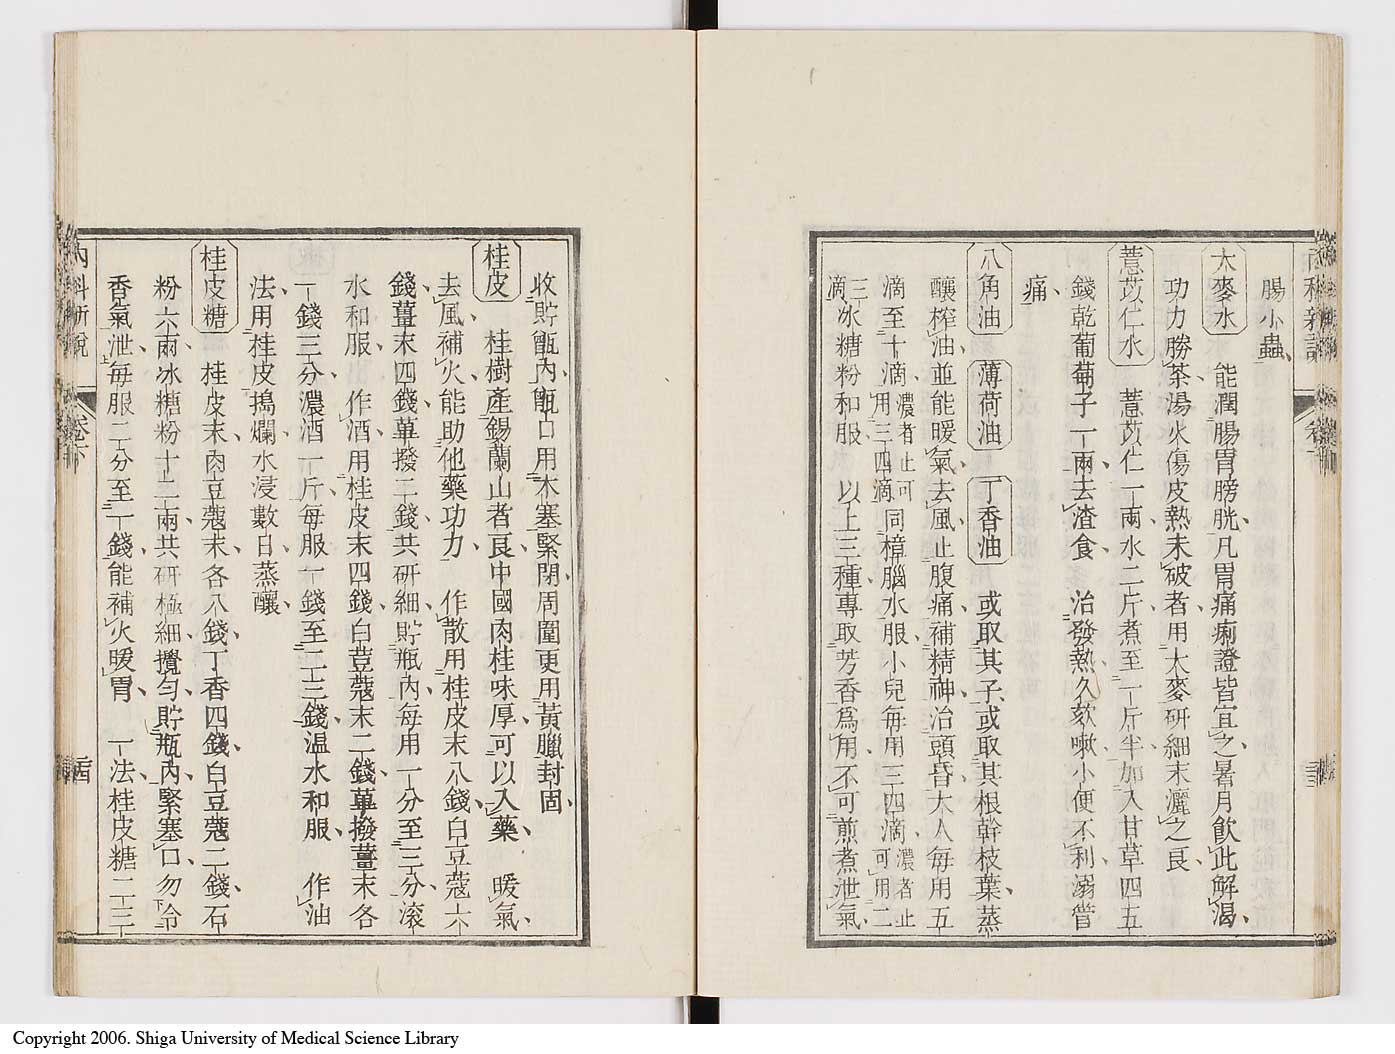 腸小蟲
大麥水 能潤腸胃膀胱凡胃痛痢證皆宜之暑月飲此解渴
功力勝茶湯火傷皮熱未破者用大麥研細末灑之良
薏苡仁水 薏苡仁一兩水二斤煮至一斤半加入甘草四五
錢乾葡萄子一兩去渣食 治發熱久欬嗽小便不利溺管
痛
八角油 薄荷油 丁香油 或取其子或取其根幹枝葉蒸
釀榨油並能暖氣去風止腹痛補精神治頭昏大人每用五
滴至十滴濃者止可用三四滴同樟腦水服小兒每用三四滴濃者止可用二
三滴冰糖粉和服 以上三種專取芳香爲用不可煎煮泄氣
收貯甑內甑口用木塞緊閉周圍更用黃臘封固
桂皮 桂樹產錫蘭山者良中國肉桂味厚可以入藥 暖氣
去風補火能助他藥功力 作散用桂皮末八錢白豆蔻六
錢薑末四錢蓽撥二錢共研細貯瓶內每用一分至三分滾
水和服 作酒用桂皮末四錢白荳蔻末二錢蓽撥薑末各
一錢三分濃酒一斤每服一錢至二三錢溫水和服 作油
法用桂皮搗爛水浸數日蒸釀
桂皮糖 桂皮末肉豆蔻末各八錢丁香四錢白豆蔻二錢石
粉六兩冰糖粉十二兩共研極細攪勻貯瓶內緊塞口勿令
香氣泄每服二分至一錢能補火暖胃 一法桂皮糖二三
內科新說
卷下
Copyright 2006. Shiga University of Medical Science Library